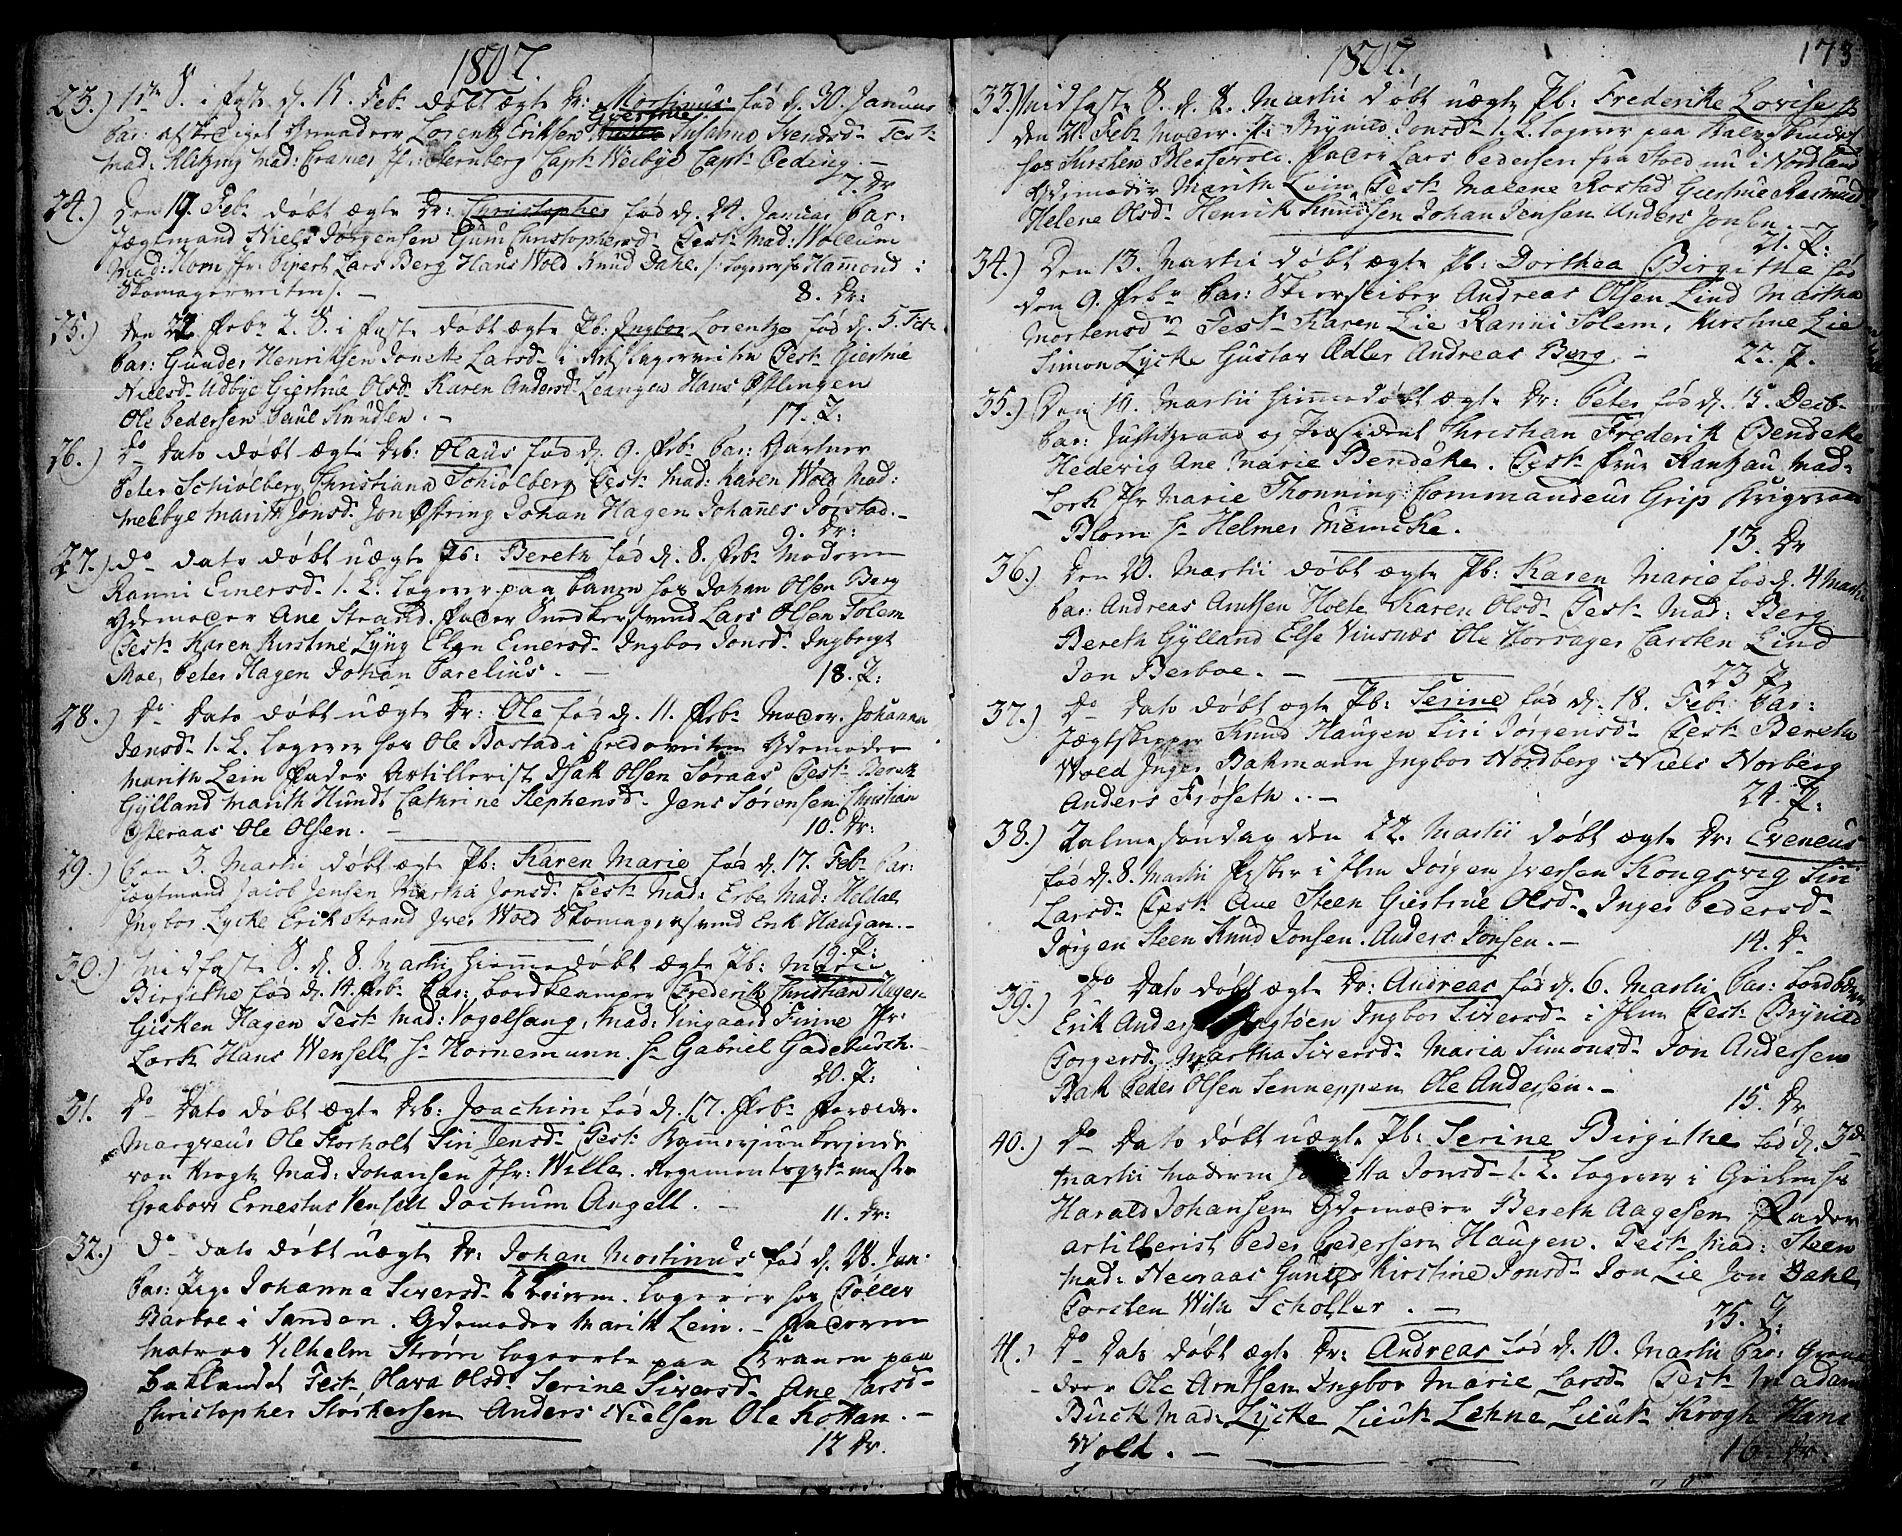 1807.
23.) 1ste S. i Faste d. 15. Feb. døbt ægte Dr: Mortinus fød d. 30. Januar
Giertrue
Par: Lorentz Eriksen Svendsd. Test:
Mad: Klitzing Mad: Cramer Jfr: Sternberg Capt: Weibye Capt: Peding. –
7. Dr
24.) Den 19. Feb. døbt ægte Dr: Christopher fød d. 24. Januar Par:
Jægtmand Niels Jørgensen Guru Christophersd. Test: Mad: Wollum
Mad: Horn Jfr: Pipert Lars Berg Hans Wold Knud Dahl. Hammond i
Skomagerveiten. –
8. Dr:
25.) Den 22. Febr. 2. S. i Faste døbt ægte Pb: Ingbor Lorentze fød d. 5. Feb.
Par: Gunder Henriksen Jonette Larsd. i Test: Giertrue
Nielsd. Udbye Giertrue Olsd. Karen Andersd. Leangen Hans Østlingen
Ole Pedersen Paul Knudsen. –
17. P:
26.) Do Dato døbt ægte Drb: Olaus fød d. 9. Febr. Par: Gartner
Peter Schiølberg Christiana Schiølberg Test: Mad: Karen Wold Mad:
Melbye Marith Jonsd. Jon Østring Johan Hagen Johannes Jørstad. –
9. Dr:
27.) Do Dato døbt uægte Pb: Bereth fød d. 8. Febr. Moderen
Ranni Einersd. 1. L. logerer paa Baner hos Johan Olsen Berg
Gdemoder Ane Strand. Fader Snedkersvend Lars Olsen Solem
Test: Karen Kirstine Lyng Elen Einersd. Ingbor Jonsd. Ingbergt
Moe, Peter Hagen Johan Parelius. –
18. P:
28.) Do Dato døbt uægte Dr: Ole fød d. 11. Febr. Moder Johanna
Jensd. 1. L. logerer hos Ole Rostad i Gdemoder
Marith Lein Fader Artillerist Isak Olsen Søraas Test: Bereth
Gylland Marith Hundt Cathrine Stephensd. Jens Sørensen Christian
Ysteraas Ole Olsen. –
10. Dr:
29.) Den 3. Martii døbt ægte Pb: Karen Marie fød d. 17. Feb. Par:
Jægtmand Jacob Jensen Martha Jonsd. Test: Mad: Erbe Mad: Heldal
Ingbor Lycke Erik Strand Iver Wold Skomagersvend Erik Haugan. –
19. P:
30.) Midfaste S. d. 8. Martii hiemmedøbt ægte Pb: Marie
Birgithe fød d. 14. Febr. Par: Frederik Christian Hagen
Gisken Hagen Test: Mad: Vogelsang, Mad: Vingaard Finne Jfr:
Lorck Hans Wensell Hr Hornemann. Hr Gabriel Gadebusch.
20. P:
31. Do Dato døbt ægte Drb: Joachim fød d. 17. Febr. Forældr.
Marqveur Ole Storholt Siri Jensd. Test:
von Krogh Mad: Johansen Jfr: Wille. Regimentsqvartermester
Grabow Ernestus Wensell Jochum Angell. –
11. Dr:
32.) Do Dato døbt uægte Dr: Johan Mortinus fød d. 28. Jan:
Par: Pige Johanna Siversd. logerer hos Tøller
Barboe i Sanden. Gdemoder Marith Lein. – Faderen
Matros Vilhelm Strøm logerte paa Kranen paa
Baklandet Test: Olava Olsd. Serine Siversd. Ane Larsd.
Christopher Størkersen Anders Nielsen Ole Kottan. –
12 Dr.
1807. 173
33.) Midfaste S. d. 8. Martii døbt uægte Pb: Frederikke Lovise fød
den 21. Feb. Moder. P. Brynild Jonsd. 1. L. logerer paa Kalvskindet
hos Kirsten Messevold. Fader Lars Pedersen fra Stod nu i Nordland
Gdemoder Marith Lein, Test: Malene Rostad Giertrue Rasmusd.
Helene Olsd. Henrik Knudsen Johan Jensen Anders Jonsen. –
21. P:
34.) Den 13. Martii døbt ægte Pb: Dorthea Birgithe fød
den 9. Febr. Par: Andreas Olsen Lind Martha
Mortensdr. Test: Karen Lie Ranni Solem, Kirstine Lie
Simon Lycke Gustav Adler Andreas Berg. –
22. P.
35.) Den 14. Martii hiemmedøbt ægte Dr: Peter fød d. 15. Decb.
Par: Justitzraad og Præsident Christian Frederik Bendeke
Hedevig Ane Marie Bendeke. Test: Frue Rantzau Mad:
Lorck Jfr Marie Thonning Commandeur Grip Krigsraad
Blom Hr Helmer Meincke.
13. Dr
36.) Den 20. Martii døbt ægte Pb: Karen Marie fød d. 4 Martii
Par: Andreas Arntsen Holte Karen Olsd. Test: Mad: Berg
Bereth Gylland Else Vinsnæs Ole Korsager Carsten Lind
Jon Berboe. –
23 P.
37.) Do Dato døbt ægte Pb: Serine fød d. 18. Feb. Par:
Jægtskipper Knud Haugen Siri Jørgensd. Test: Bereth
Wold Inger Bakmann Ingbor Nordberg Niels Norberg
Anders Frøseth. –
24. P:
38.) Palmesøndag den 22. Martii døbt ægte Dr: Eveneus
fød d. 8. Martii Fisker i Ihlen Jørgen Iversen Kongsvig Siri
Larsd. Test: Ane Steen Giertrue Olsd. Inger Pedersd.
Jørgen Steen Knud Jonsen. Anders Jonsen. –
14. Dr
39.) Do Dato døbt ægte Dr: Andreas fød d. 6. Martii Par:
Erik Anders Ingbor Siversd. i Ihlen Test: Brynild
Torgersd. Martha Siversd. Maria Simonsd. Jon Andersen
Bak Peder Olsen Senneppen Ole Andersen. –
15. Dr
40.) Do Dato døbt uægte Pb: Serine Birgithe fød d. 3de
Martii Moderen Jonsd. 1. L. logerer i hos
Harald Johansen Gdemoder Bereth Aagesen Fader
Artillerist Peder Pedersen Haugen. Test: Mad: Steen
Mad: Neeraas Gunild Kirstine Jonsd. Jon Lie Jon Dahl
Torsten With Schøller. –
25. P:
41. Do Dato døbt ægte Dr: Andreas fød d. 10. Martii Par:
Ole Arntsen Ingbor Marie Larsd. Test: Madam
Buck Mad: Lycke Lieut. Lehne Lieut. Krogh Hans
Wold. –
16. Dr.